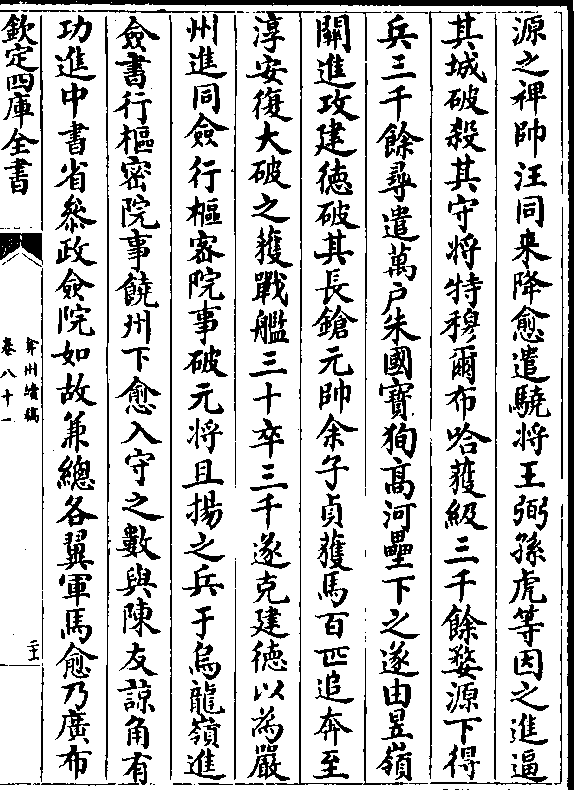 源之禆帥汪同来降愈遣驍将王弼孫虎等因之進逼
其城破殺其守将特穆爾布哈獲級三千餘婺源下得
兵三千餘尋遣萬户朱國寶狥髙河壘下之遂由昱嶺
關進攻建徳破其長鎗元帥余子貞獲馬百匹追奔至
淳安復大破之獲戰艦三十卒三千遂克建徳以為嚴
州進同僉行樞宻院事破元将且揚之兵于烏龍嶺進
僉書行樞宻院事饒州下愈入守之數與陳友諒角有
功進中書省叅政僉院如故兼總各翼軍馬愈乃廣布
欽定四庫全書
弇州續稿
卷八十一
二十五